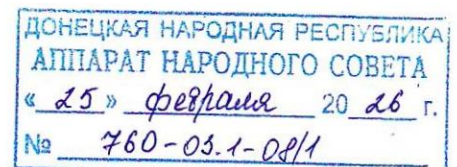 ДОНЕЦКАЯ НАРОДНАЯ РЕСПУБЛИКА
АППАРАТ НАРОДНОГО СОВЕТА
« 25 » февраля 20 26 г.
№ 760-03.1-08/1